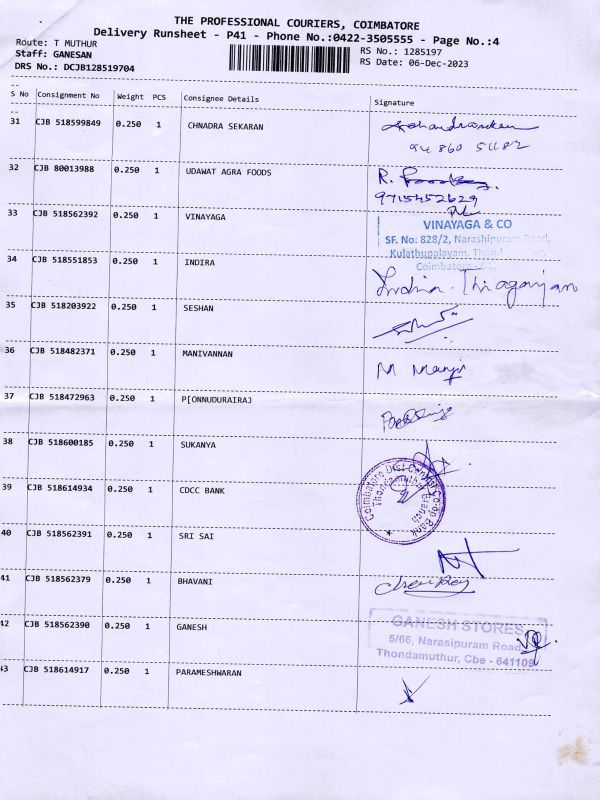 THE PROFESSIONAL COURIERS, COIMBATORE
Delivery Runsheet - P41 - Phone No.:0422-3505555 - Page No.:4
Route: T MUTHUR RS No.: 1285197
Staff: GANESAN RS Date: 06-Dec-2023
DRS No.: DCJB128519704
S No Consignment No Weight PCS Consignee Details Signature
31 CJB 518599849 0.250 1 CHNADRA SEKARAN
94 860 51182
32 CJB 80013988 0.250 1 UDAWAT AGRA FOODS R.
9715452629
33 CJB 518562392 0.250 1 VINAYAGA VINAYAGA & CO
SF. No: 828/2, Narashipuram Road,
Kulathupalayam,
Coimbatore
34 CJB 518551853 0.250 1 INDIRA Indira. Thiagarajan
35 CJB 518203922 0.250 1 SESHAN
36 CJB 518482371 0.250 1 MANIVANNAN M Manji
37 CJB 518472963 0.250 1 P[ONNUDURAIRAJ
38 CJB 518600185 0.250 1 SUKANYA
39 CJB 518614934 0.250 1 CDCC BANK Coimbatore Dist Central Co-op Bank
Thondamuthur Branch
40 CJB 518562391 0.250 1 SRI SAI
41 CJB 518562379 0.250 1 BHAVANI
42 CJB 518562390 0.250 1 GANESH GANESH STORES
5/66, Narasipuram Road
Thondamuthur, Cbe - 641109
43 CJB 518614917 0.250 1 PARAMESHWARAN